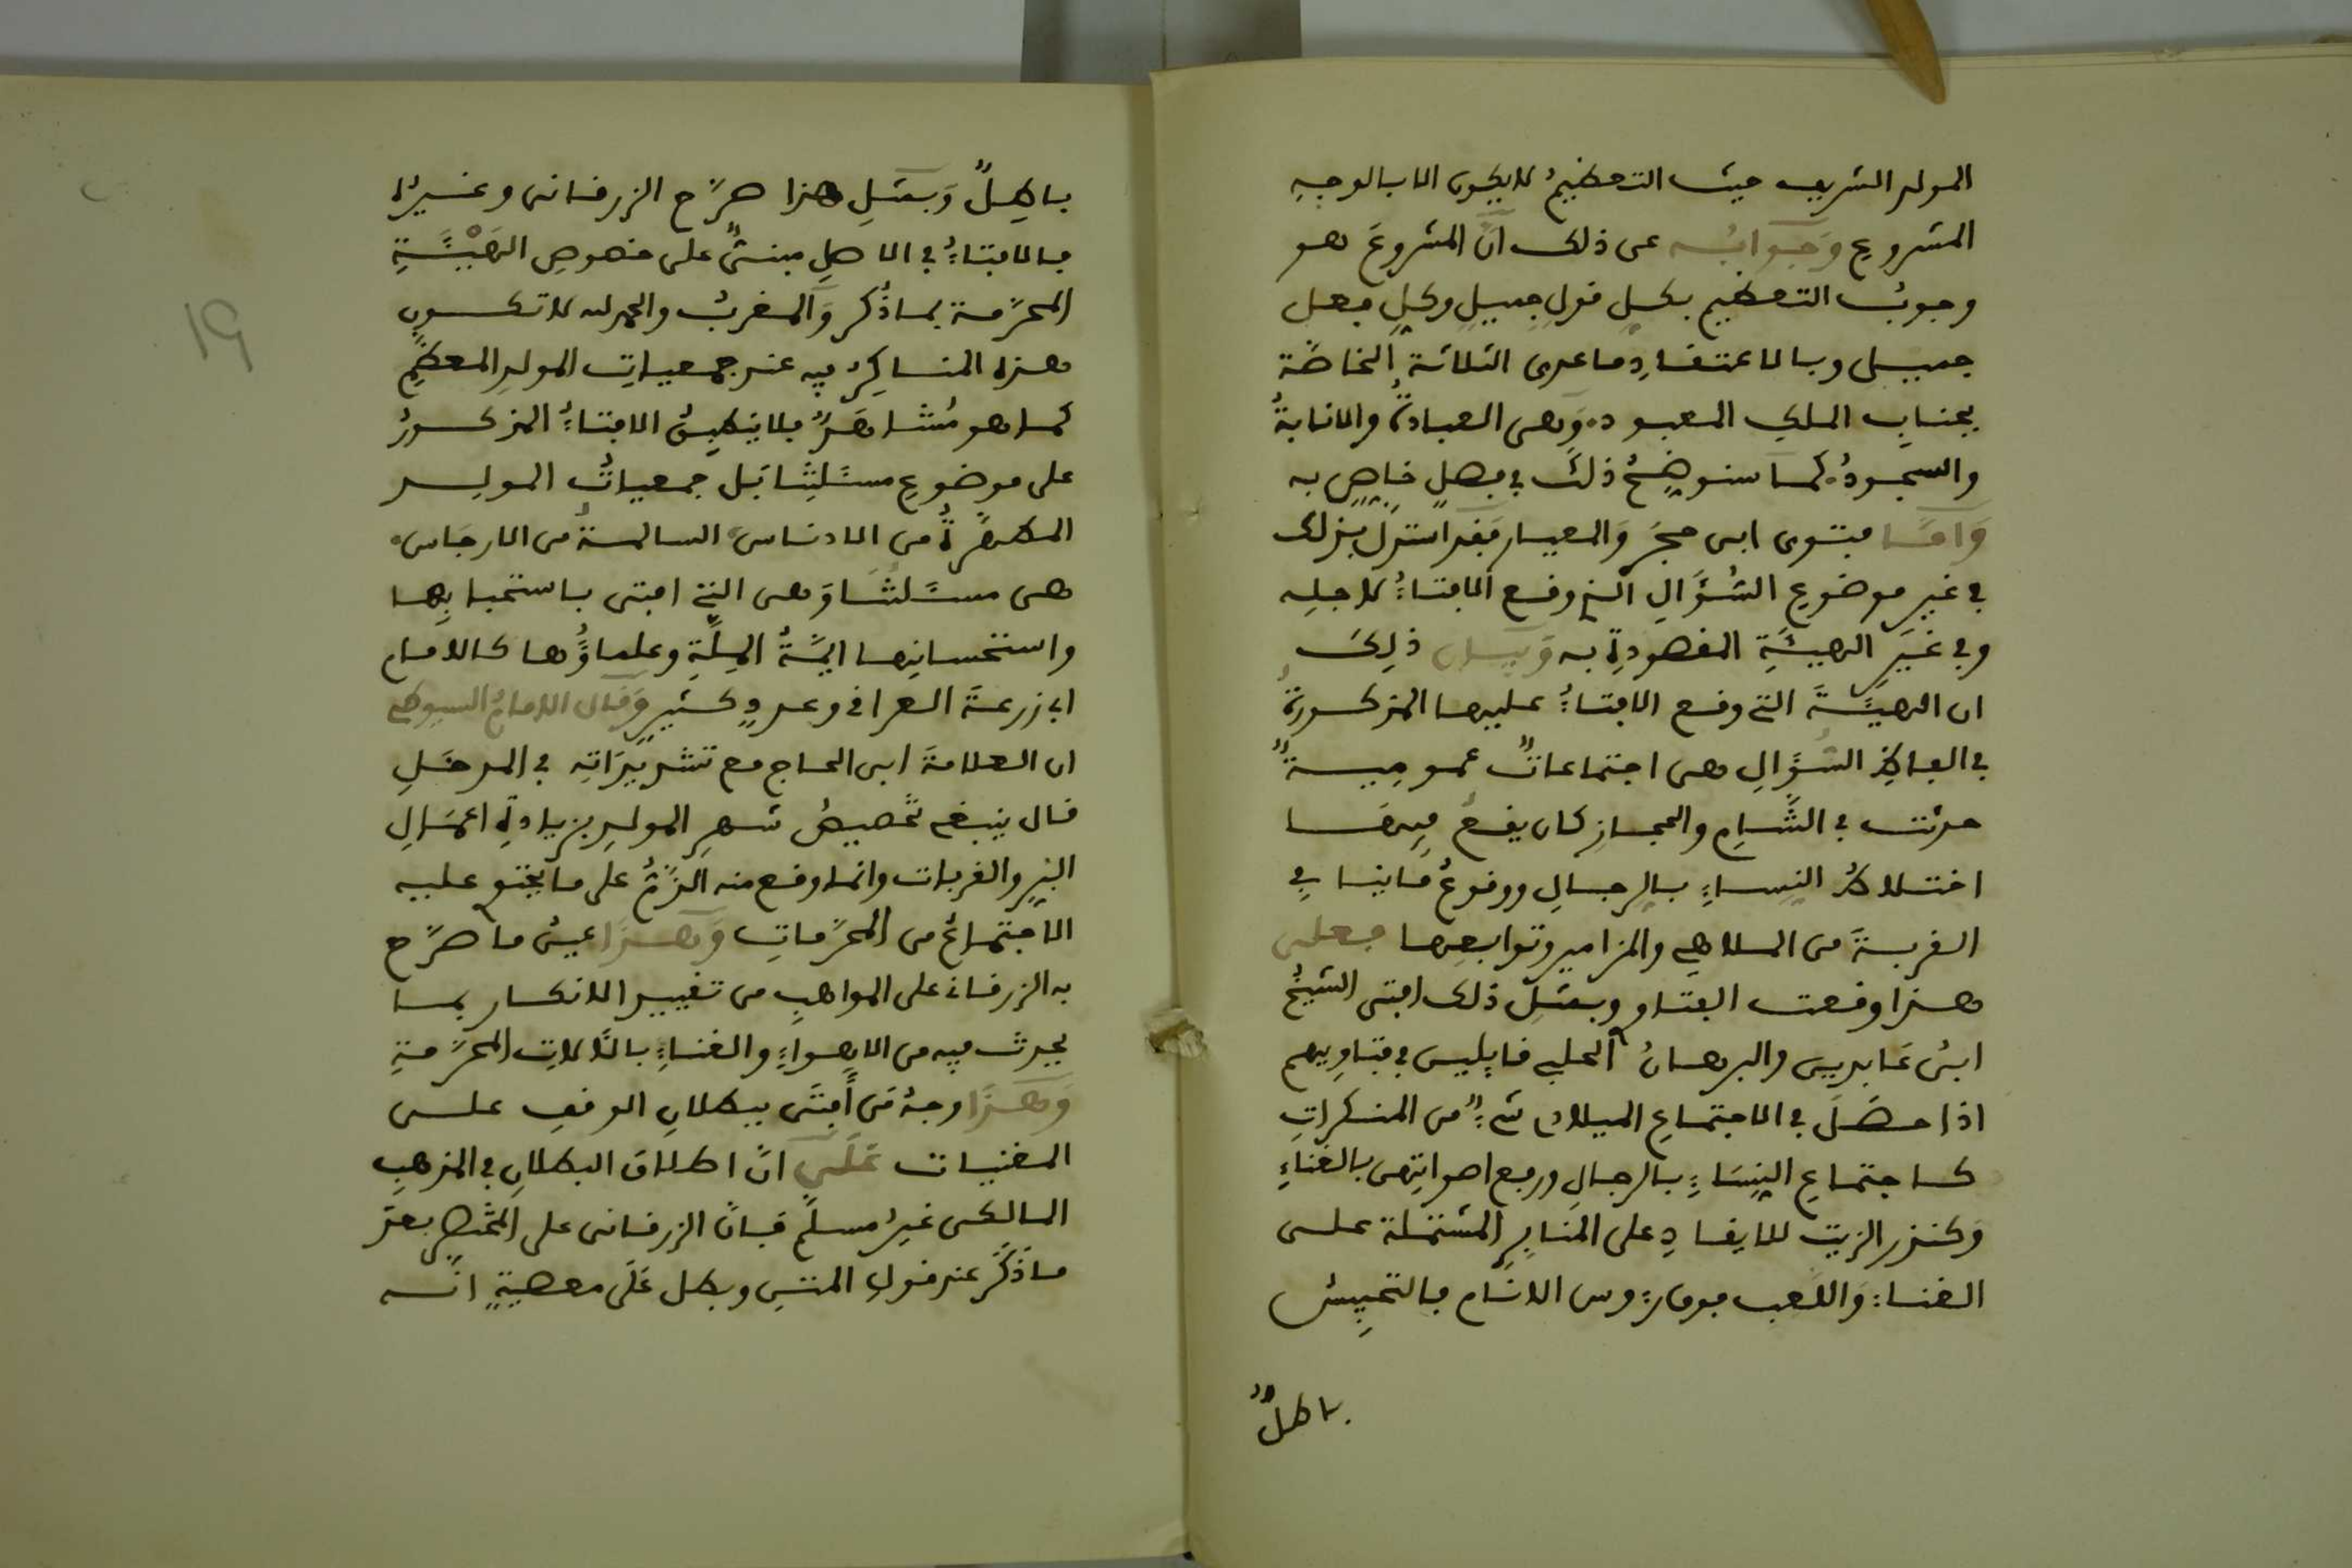 المولد الشريف حيث التعظيمُ لا يكون الا بالوجهِ
المشروعِ وَجَوابُه عن ذلك انّ المشروعَ هو
وجوبُ التعظيم بكلِ قولٍ جميلٍ وكلِ فعل
جميل وبالاعتقادِ ما عدى الثلاثة الخاصّة
بجنابِ الملكِ المعبود. وَهى العبادةُ والانابةُ
والسجودُ. كما سنوضِحُ ذلك في فصلٍ خاصٍ به
وَامّا فتوى ابن حجَر وَالمعيار فقد استدلّ بذلك
في غير موضوعِ السُؤَالِ الذى وقع الافتاءُ لاجله
وفي غيَرِ الهيئَةِ المقصودةِ به وَبيان ذلِكَ
ان الهيئَةَ التى وقع الافتاءُ عليها المذكورةُ
في الفاظِ السُؤَالِ هى اجتماعاتٌ عموميةٌ
حدثت في الشَّامِ والحجازِ كان يقعُ فيها
اختلاطُ النِساءِ بالرجالِ ووقوعُ ما ينافي
القربةَ من الملاهِى والمزامير وتوابعِها فعلى
هذا وقعت الفتاوى وبمثلِ ذلك افتى الشيخُ
ابنُ عَابدين والبرهانُ الحلبى قايلين في فتاويهم
اذا حصَلَ في الاجتماعِ الميلادى شىءٌ من المنكراتِ
كاجتماعِ النِسَاءِ بالرجالِ ورفع اصواتِهن بالغناءِ
وَكنذر الزيت للايقادِ على المنابرِ المشتملة على
الغناءِ وَاللعب فوق رءوس الانَام فالتحبيسُ
باطلٌ
باطِلٌ وَبمثلِ هذا صرّح الزرقانى وغيرُه
فالافتاءُ في الاصلِ مبنىٌ على خصوصِ الهَيْئَةِ
المحرّمة بما ذُكر وَالمغربُ والحمد لله لا تكون
هذه المناكِرُ فيه عند جمعياتِ المولدِ المعظّمِ
كما هو مُشاهَدٌ فلا ينطبقُ الافتاءُ المذكورُ
على موضوعِ مسئَلتِنا بَل جمعياتُ المولد
المطهّرةُ من الادناس. السالمةُ من الارجَاس.
هى مسئَلتُنا وَهى التى افتى باستحبابِها
واستحسانِها ايمّةُ المِلّةِ وعلماؤُها كالامام
ابى زرعةَ العراقى وعددٍ كثيرٍ وَقال الامامُ السيوطى
ان العلامةَ ابن الحاج مع تشديدَاتِه في المدخَلِ
قال ينبغى تخصيصُ شهرِ المولدِ بزيادةِ اعمَالِ
البِرِ والقربات وانما وقع منه الذّمُ على ما يحتوى عليه
الاجتماعُ من المحرّماتِ وَهَذَا عينُ ما صرّح
به الزرقانى على المواهبِ من تقييدِ الانكار بما
يحدث فيه من الاهواءِ والغناءِ بالآلاتِ المحرّمةِ
وَهَذَا وجهُ مَن أَفتَى ببطلانِ الوقفِ على
المغنيات عَلَى انّ اطلاقَ البطلانِ في المذهبِ
المالكى غيرُ مسلّمٍ فانّ الزرقانى على المختصرِ بعدَ
ما ذكَر عند قولِ المتنِ وبطل عَلَى معصيةٍ انّه
١٩